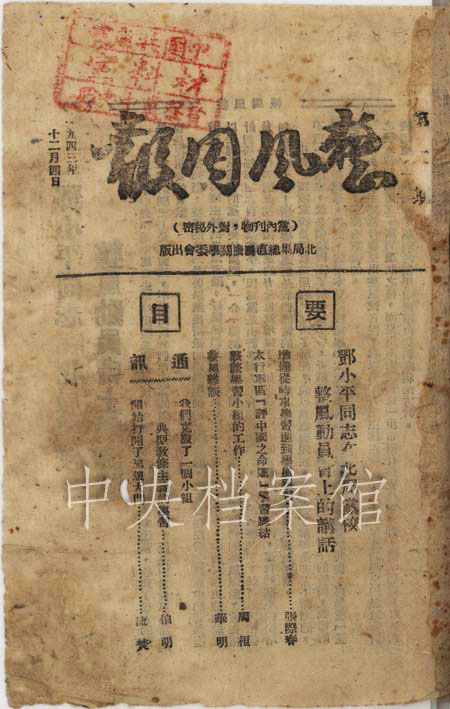 第一
整風周報
一九四三年
十二月四日
(黨內刊物，對外秘密)
北局集總直屬機關學委會出版
要目
鄧小平同志在北局黨校
整風動員會上的講話
準備從時事學習進到學風……張際春
太行軍區「評中國之命運」學習總結
談談學習小組的工作……周桓
整風雜談……華明
通訊
我們克服了一個小組
典型教條主義……伯明
開始打開了思想大門……流焚
中央档案馆